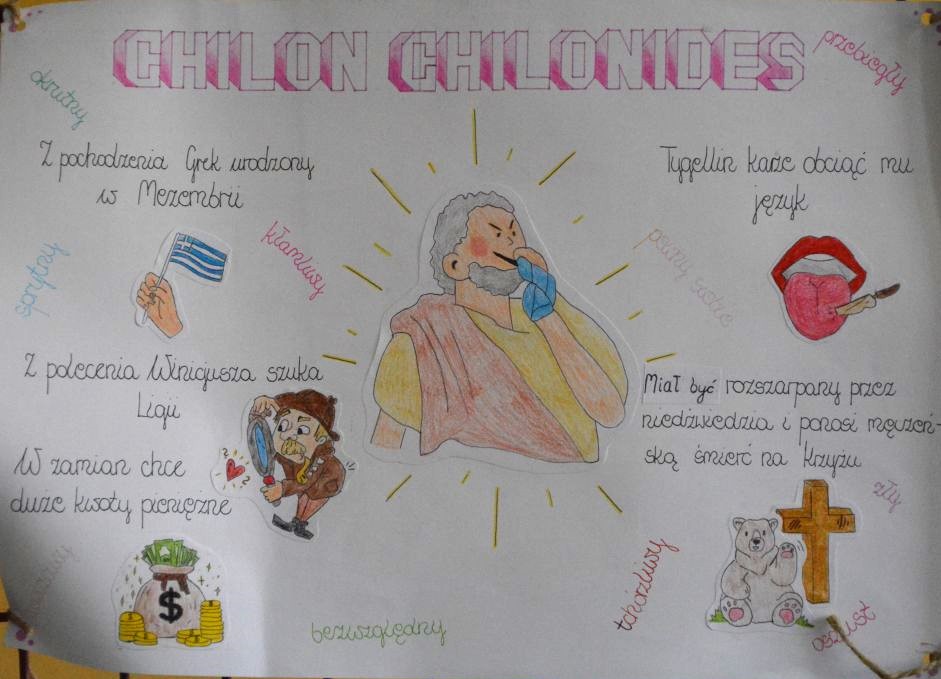 CHILON CHILONIDES
przebiegły
okrutny
Z pochodzenia Grek urodzony
w Mezembrii
Tygellin każe obciąć mu
język
sprytny
kłamliwy
pewny siebie
Z polecenia Winicjusza szuka
Ligii
W zamian chce
duże kwoty pieniężne
Miał być rozszarpany przez
niedźwiedzia i ponosi męczeń-
ską śmierć na krzyżu
zły
tchórzliwy
oszust
bezwzględny
$